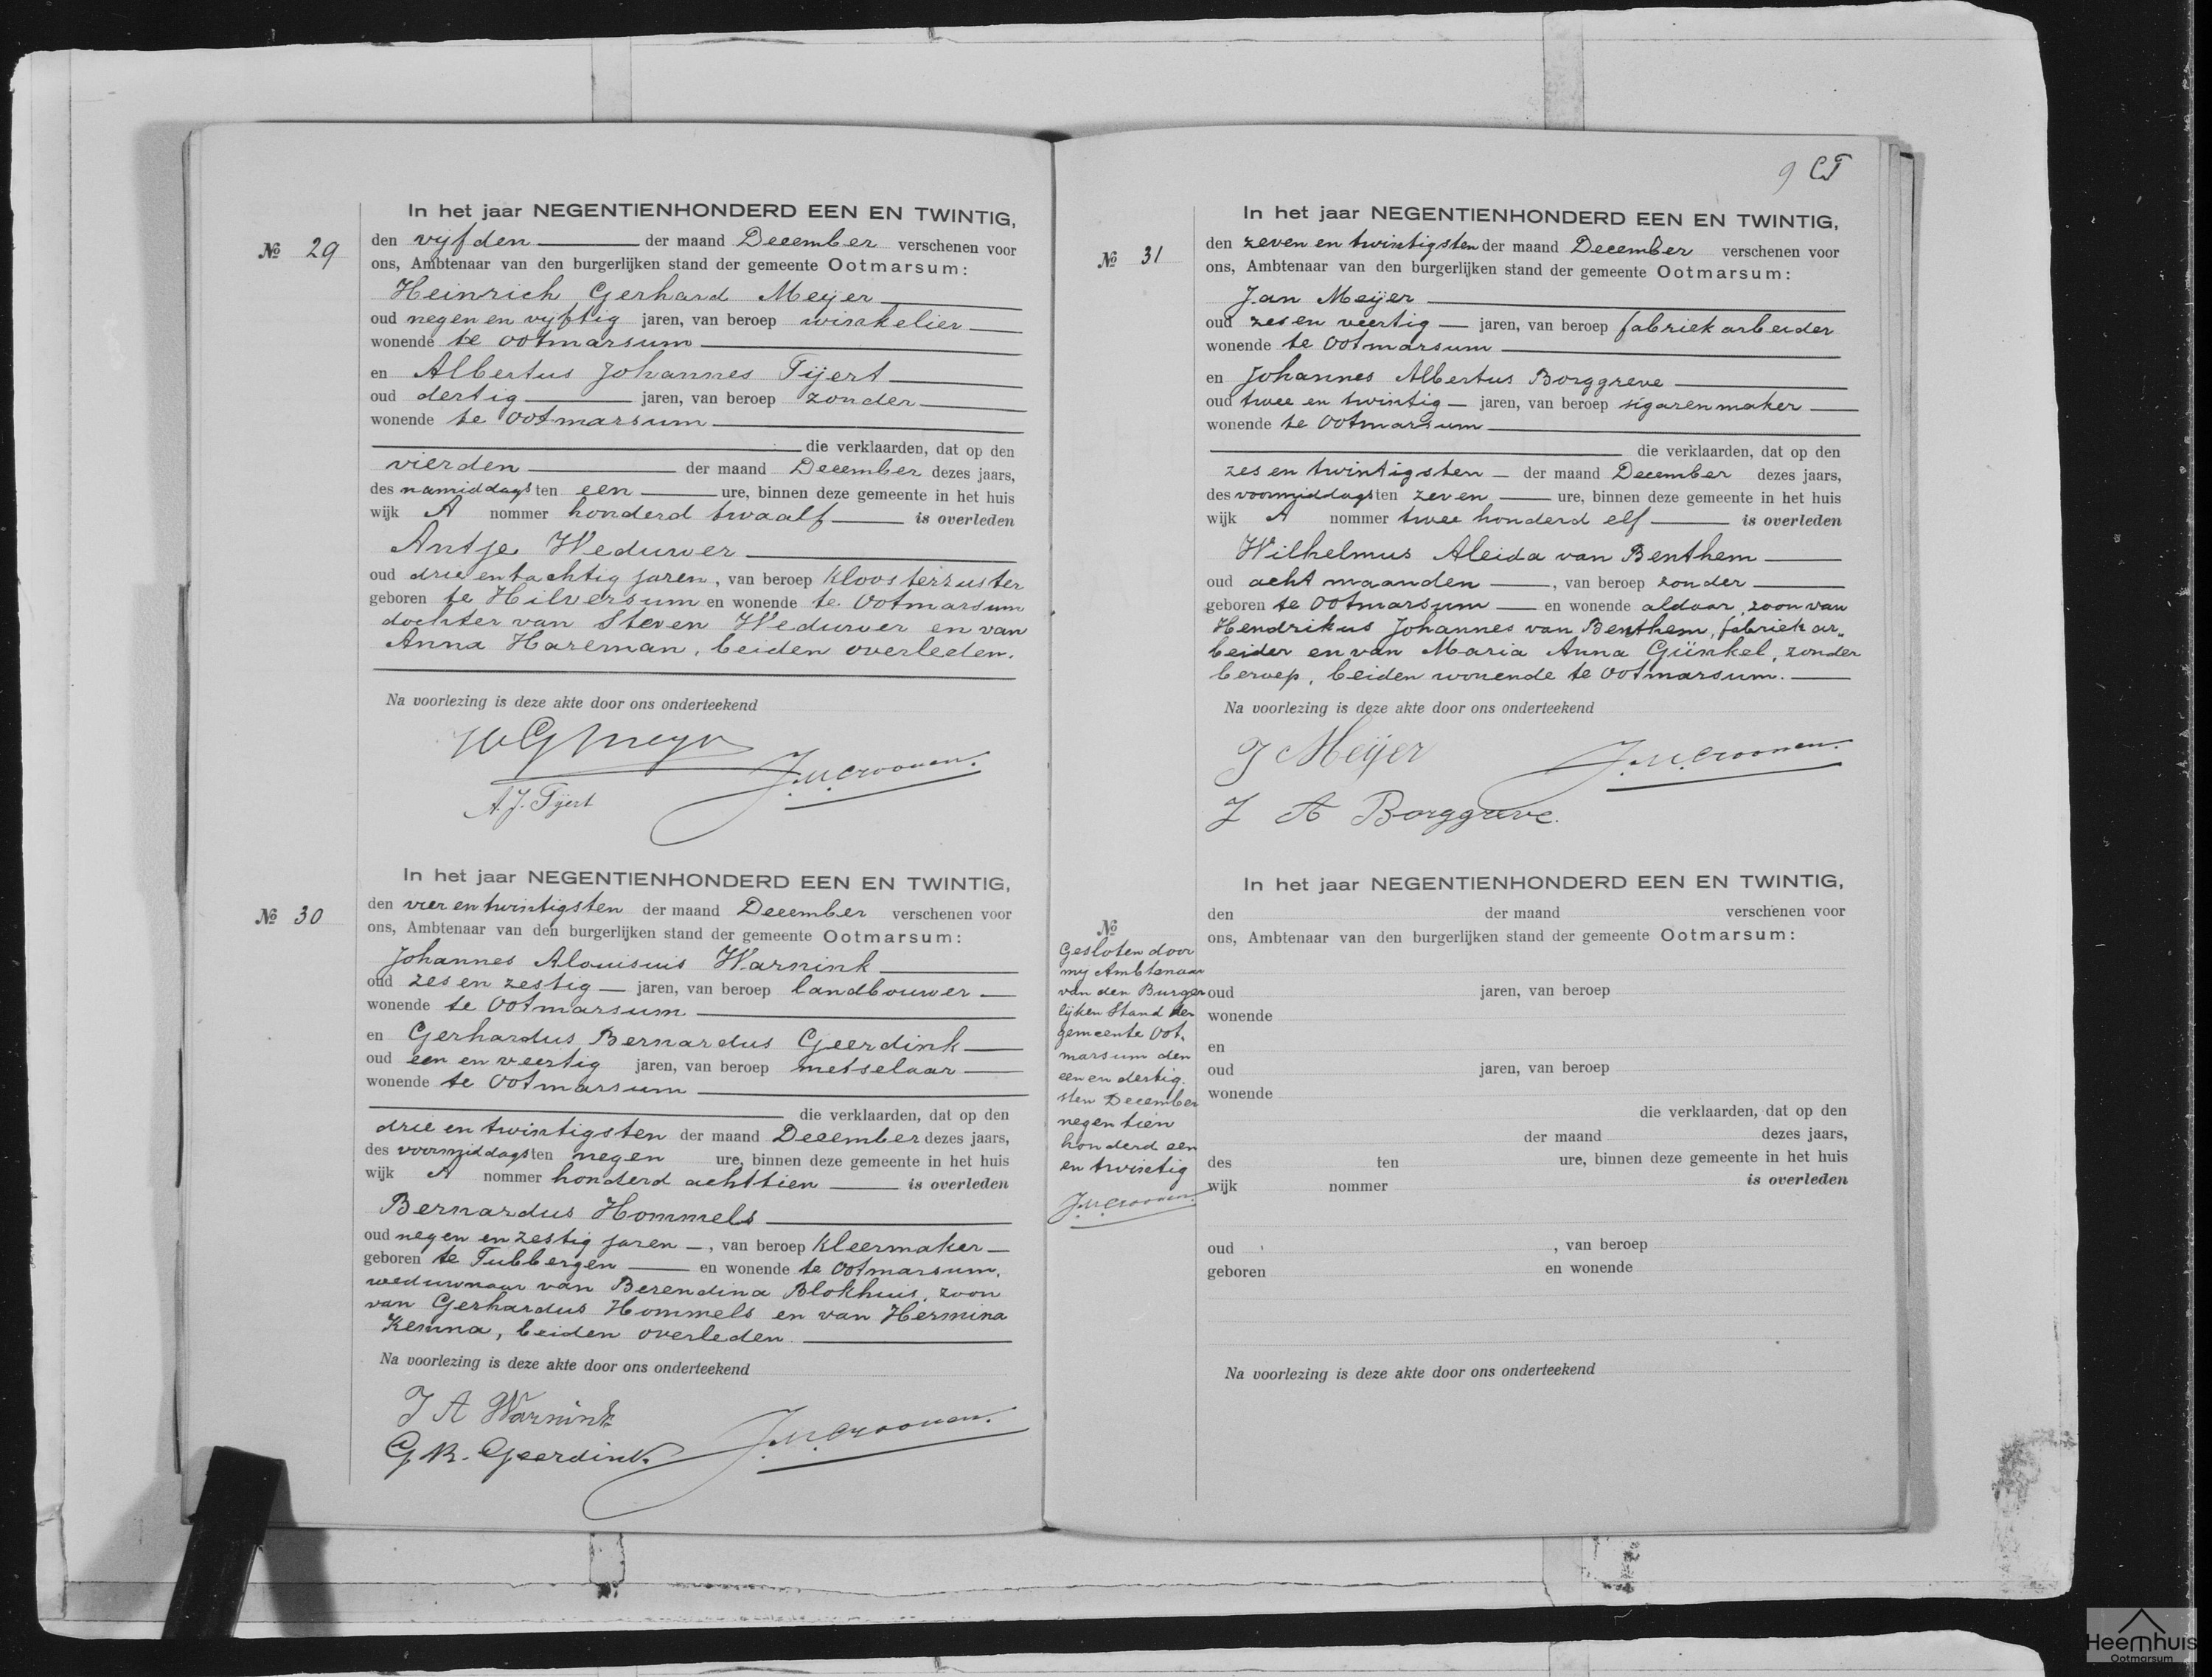 In het jaar NEGENTIENHONDERD EEN EN TWINTIG,
№ 29
den vijfden der maand December verschenen voor
ons, Ambtenaar van den burgerlijken stand der gemeente Ootmarsum:
Heinrich Gerhard Meyer
oud negen en vijftig jaren, van beroep winkelier
wonende te Ootmarsum
en Albertus Johannes Tijert
oud dertig jaren, van beroep zonder
wonende te Ootmarsum
die verklaarden, dat op den
vierden der maand December dezes jaars,
des namiddags ten een ure, binnen deze gemeente in het huis
wijk A nommer honderd twaalf is overleden
Antje Weduwer
oud drie en tachtig jaren, van beroep kloosterzuster
geboren te Hilversum en wonende te Ootmarsum
dochter van Steven Weduwer en van
Anna Hareman, beiden overleden.
Na voorlezing is deze akte door ons onderteekend
HGMeyer
J.M.Croonen.
A.J. Tijert
In het jaar NEGENTIENHONDERD EEN EN TWINTIG,
№ 30
den vier en twintigsten der maand December verschenen voor
ons, Ambtenaar van den burgerlijken stand der gemeente Ootmarsum:
Johannes Alouisuis Warnink
oud zes en zestig jaren, van beroep landbouwer
wonende te Ootmarsum
en Gerhardus Bernardus Geerdink
oud een en veertig jaren, van beroep metselaar
wonende te Ootmarsum
die verklaarden, dat op den
drie en twintigsten der maand December dezes jaars,
des voormiddags ten negen ure, binnen deze gemeente in het huis
wijk A nommer honderd achttien is overleden
Bernardus Hommels
oud negen en zestig jaren, van beroep kleermaker
geboren te Tubbergen en wonende te Ootmarsum,
weduwnaar van Berendina Blokhuis, zoon
van Gerhardus Hommels en van Hermina
Kemna, beiden overleden
Na voorlezing is deze akte door ons onderteekend
J A Warnink
J.M.Croonen.
G.B. Geerdink.
9 CT
In het jaar NEGENTIENHONDERD EEN EN TWINTIG,
№ 31
den zeven en twintigsten der maand December verschenen voor
ons, Ambtenaar van den burgerlijken stand der gemeente Ootmarsum:
Jan Meijer
oud zes en veertig jaren, van beroep fabriekarbeider
wonende te Ootmarsum
en Johannes Albertus Borggreve
oud twee en twintig jaren, van beroep sigarenmaker
wonende te Ootmarsum
die verklaarden, dat op den
zes en twintigsten der maand December dezes jaars,
des voormiddags ten zeven ure, binnen deze gemeente in het huis
wijk A nommer twee honderd elf is overleden
Wilhelmus Aleida van Benthem
oud acht maanden, van beroep zonder
geboren te Ootmarsum en wonende aldaar, zoon van
Hendrikus Johannes van Benthem, fabriek ar„
beider en van Maria Anna Günkel, zonder
beroep, beiden wonende te Ootmarsum.
Na voorlezing is deze akte door ons onderteekend
J Meijer
J.M.Croonen.
J A Borggreve.
In het jaar NEGENTIENHONDERD EEN EN TWINTIG,
den der maand verschenen voor
ons, Ambtenaar van den burgerlijken stand der gemeente Ootmarsum:
oud jaren, van beroep
wonende
en
oud jaren, van beroep
wonende
die verklaarden, dat op den
der maand dezes jaars,
des ten ure, binnen deze gemeente in het huis
wijk nommer is overleden
oud , van beroep
geboren en wonende
Na voorlezing is deze akte door ons onderteekend
№
Gesloten door
my Ambtenaar
van den Burger
lijken Stand der
gemeente Oot,
marsum den
een en dertig.
sten December
negentien
honderd een
en twintig
J.M.Croonen.
Heemhuis
Ootmarsum